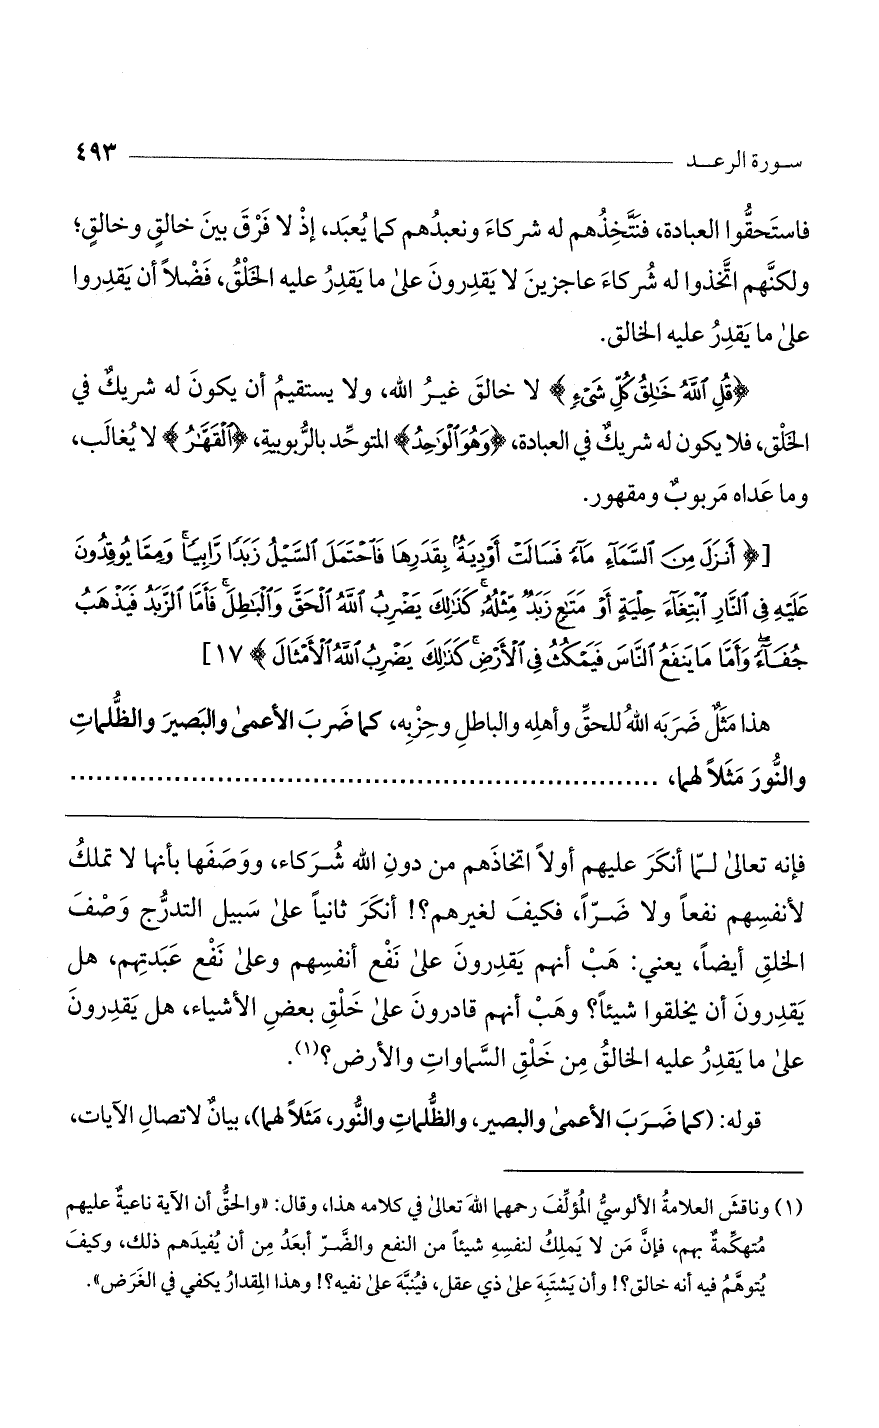 سورة الرعد ٤٩٣
فاستَحقُّوا العبادة، فنَتَّخِذُهم له شركاءَ ونعبدُهم كما يُعبَد، إذْ لا فَرْقَ بينَ خالقٍ وخالقٍ؛
ولكنَّهم اتَّخذوا له شُركاءَ عاجزينَ لا يَقدِرونَ علىٰ ما يَقدِرُ عليه الخَلْقُ، فَضْلاً أن يَقدِروا
علىٰ ما يَقدِرُ عليه الخالق.
﴿قُلِ ٱللَّهُ خَٰلِقُ كُلِّ شَىْءٍ﴾ لا خالقَ غيرُ الله، ولا يستقيمُ أن يكونَ له شريكٌ في
الخَلْق، فلا يكون له شريكٌ في العبادة، ﴿وَهُوَ ٱلْوَٰحِدُ﴾ المتوحِّد بالرُّبوبيةِ، ﴿ٱلْقَهَّٰرُ﴾ لا يُغالَب،
وما عَداه مَربوبٌ ومقهور.
[﴿أَنزَلَ مِنَ ٱلسَّمَآءِ مَآءً فَسَالَتْ أَوْدِيَةٌۢ بِقَدَرِهَا فَٱحْتَمَلَ ٱلسَّيْلُ زَبَدًا رَّابِيًا ۚ وَمِمَّا يُوقِدُونَ
عَلَيْهِ فِى ٱلنَّارِ ٱبْتِغَآءَ حِلْيَةٍ أَوْ مَتَٰعٍ زَبَدٌ مِّثْلُهُۥ ۚ كَذَٰلِكَ يَضْرِبُ ٱللَّهُ ٱلْحَقَّ وَٱلْبَٰطِلَ ۚ فَأَمَّا ٱلزَّبَدُ فَيَذْهَبُ
جُفَآءً ۖ وَأَمَّا مَا يَنفَعُ ٱلنَّاسَ فَيَمْكُثُ فِى ٱلْأَرْضِ ۚ كَذَٰلِكَ يَضْرِبُ ٱللَّهُ ٱلْأَمْثَالَ﴾ ١٧]
هذا مَثَلٌ ضَرَبَه اللهُ للحقِّ وأهلِه والباطلِ وحِزْبِه، كما ضَربَ الأعمىٰ والبَصيرَ والظُّلماتِ
والنُّورَ مَثَلاً لهما، ................................................................
فإنه تعالىٰ لـمّا أنكَرَ عليهم أولاً اتخاذَهم من دونِ الله شُركاء، ووَصَفَها بأنها لا تملكُ
لأنفسِهم نفعاً ولا ضَرّاً، فكيفَ لغيرهم؟! أنكَرَ ثانياً علىٰ سَبيل التدرُّج وَصْفَ
الخلقِ أيضاً، يعني: هَبْ أنهم يَقدِرونَ علىٰ نَفْع أنفسِهم وعلىٰ نَفْع عَبَدتِهم، هل
يَقدِرونَ أن يخلقوا شيئاً؟ وهَبْ أنهم قادرونَ علىٰ خَلْقِ بعضِ الأشياء، هل يَقدِرونَ
علىٰ ما يَقدِرُ عليه الخالقُ مِن خَلْقِ السَّماواتِ والأرض؟(١).
قوله: (كما ضَرَبَ الأعمىٰ والبصير، والظُّلماتِ والنُّور، مَثَلاً لهما)، بيانٌ لاتصالِ الآيات،
(١) وناقشَ العلامةُ الألوسيُّ المُؤلِّفَ رحمهما اللهَ تعالىٰ في كلامه هذا، وقال: «والحقُّ أن الآية ناعيةٌ عليهم
مُتهكِّمةٌ بهم، فإنَّ مَن لا يَملِكُ لنفسِهِ شيئاً من النفع والضَّرّ أبعَدُ مِن أن يُفيدَهم ذلك، وكيفَ
يُتوهَّمُ فيه أنه خالق؟! وأن يَشتَبِهَ علىٰ ذي عقل، فيُنبَّهَ علىٰ نفيه؟! وهذا المِقدارُ يكفي في الغَرَض».